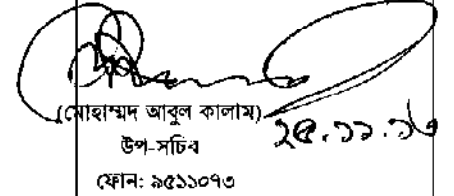 (মোহাম্মদ আবুল কালাম)
২৫.১১.১৬
উপ-সচিব
ফোন: ৯৫১১০৭৩